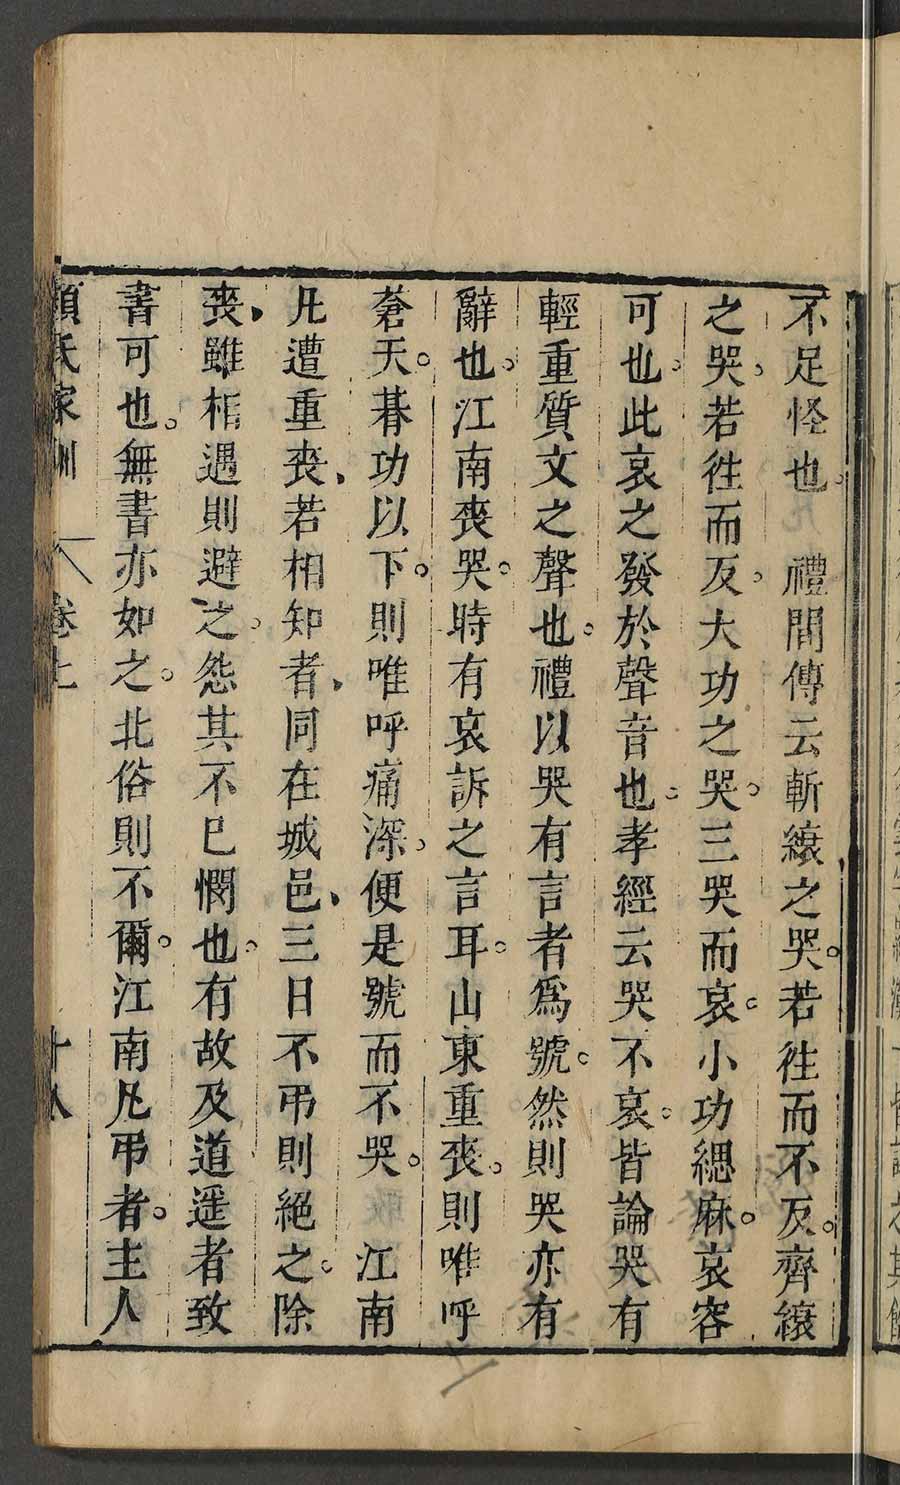 不足怪也 禮間傳云斬縗之哭若徃而不反齊縗
之哭若徃而反大功之哭三哭而哀小功緦麻哀容
可也此哀之發於聲音也孝經云哭不哀皆論哭有
輕重質文之聲也禮以哭有言者爲號然則哭亦有
辭也江南喪哭時有哀訴之言耳山東重喪則唯呼
蒼天朞功以下則唯呼痛深便是號而不哭 江南
凡遭重喪若相知者同在城邑三日不弔則絕之除
喪雖相遇則避之怨其不已憫也有故及道遥者致
書可也無書亦如之北俗則不爾江南凡弔者主人
顏氏家訓 卷上 十八